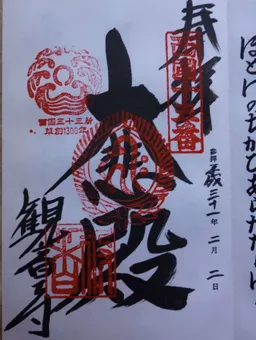 ほとけのちかひあらたなり
奉拝
西国十五番
平成三十一年二月二日
大悲殿
西国三十三所
草創1300年
観音寺